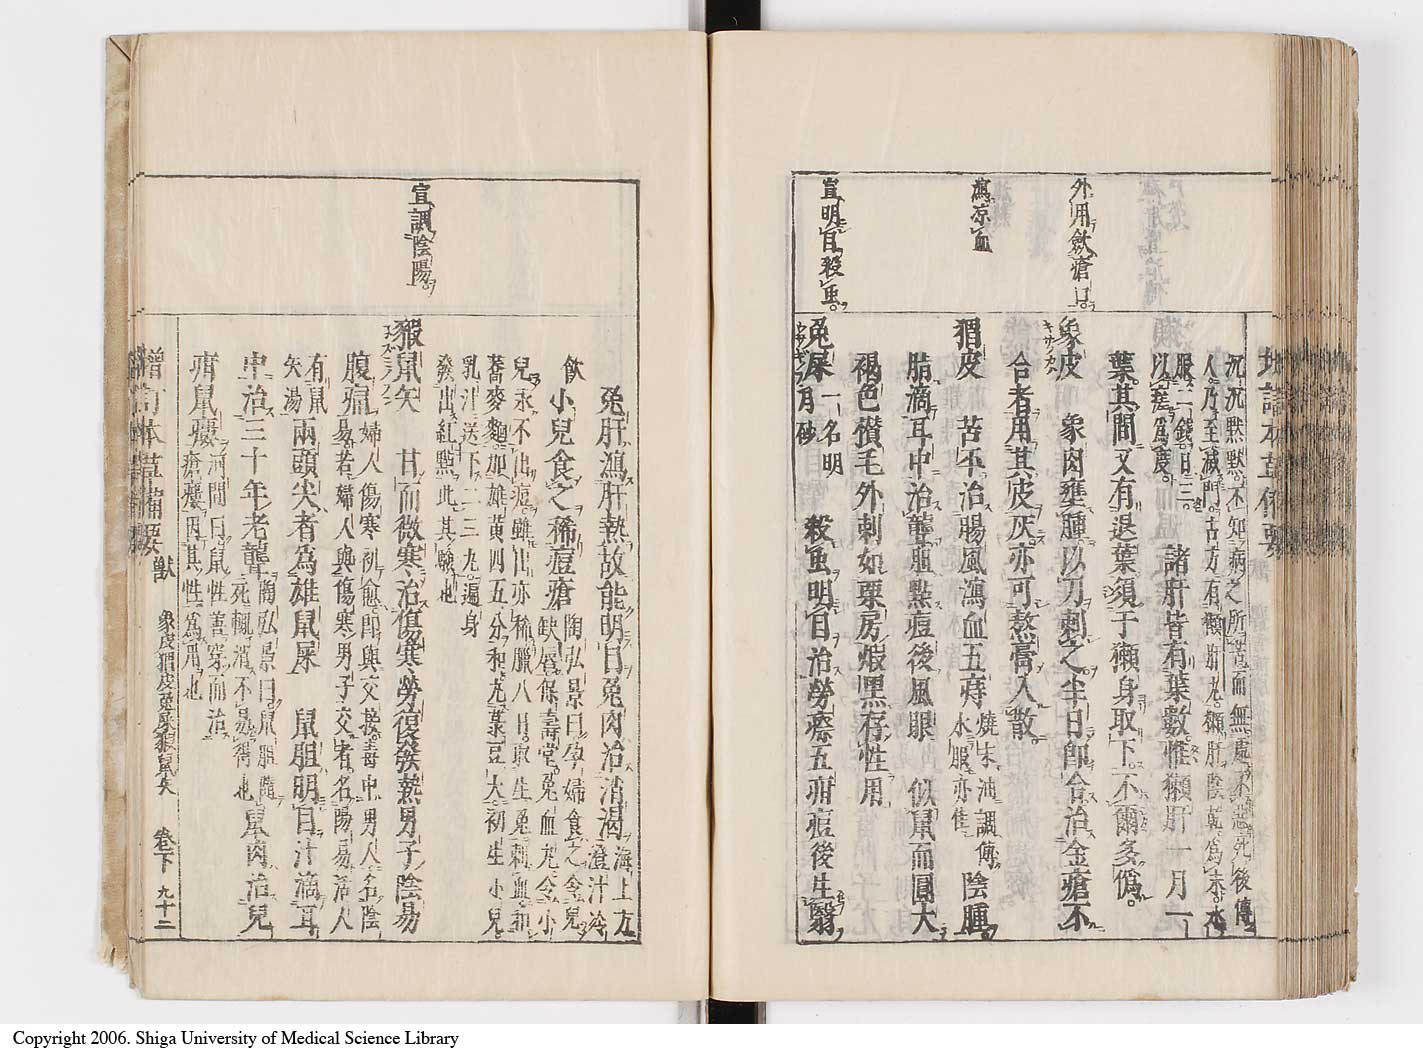 外用斂瘡口
瀉凉血
宣明目殺虫
沉沉默默不知病之所苦而無處不惡死後傳
人乃至滅門古方有獺肝丸獺肝陰乾爲末水
服二錢日三
以瘥爲度
諸肝皆有葉數惟獺肝一月一
葉其間又有退葉須于獺身取下不爾多僞
象皮 象肉壅腫以刀刺之半日即合治金瘡不
合者用其皮灰亦可熬膏入散
猬皮 苦平治腸風瀉血五痔
燒末油調傅
水服亦佳
陰腫
脂滴耳中治聾胆點痘後風眼 似鼠而圓大
褐色攢毛外刺如栗房煅黑存性用
兔屎
一名明
月砂
殺虫明目治勞瘵五疳痘後生翳
宣調陰陽
兔肝瀉肝熱故能明目兔肉治消渴
海上方
澄汁冷
飲
小兒食之稀痘瘡
陶弘景曰孕婦食之令兒
缺唇保壽堂兔血丸令小
兒永不出痘雖出亦稀臘八日取生兔刺血和
蕎麥麵加雄黃四五分和丸菉豆大初生小兒
乳汁送下二三丸遍身
發出紅點此其驗也
豭鼠矢 甘而微寒治傷寒勞復發熱男子陰易
腹痛
婦人傷寒初愈即與交接毒中男人名陰
易若婦人與傷寒男子交者名陽易活人
有鼠
矢湯
兩頭尖者爲雄鼠屎 鼠胆明目汁滴耳
中治三十年老聾
陶弘景曰鼠胆隨
死輒消不易得也
鼠肉治兒
疳鼠瘻
河間曰鼠性善穿而治
瘡瘻因其性爲用也
增訂本草備要 獸 象皮猬皮兔屎豭鼠矢 卷下 九十二
Copyright 2006. Shiga University of Medical Science Library